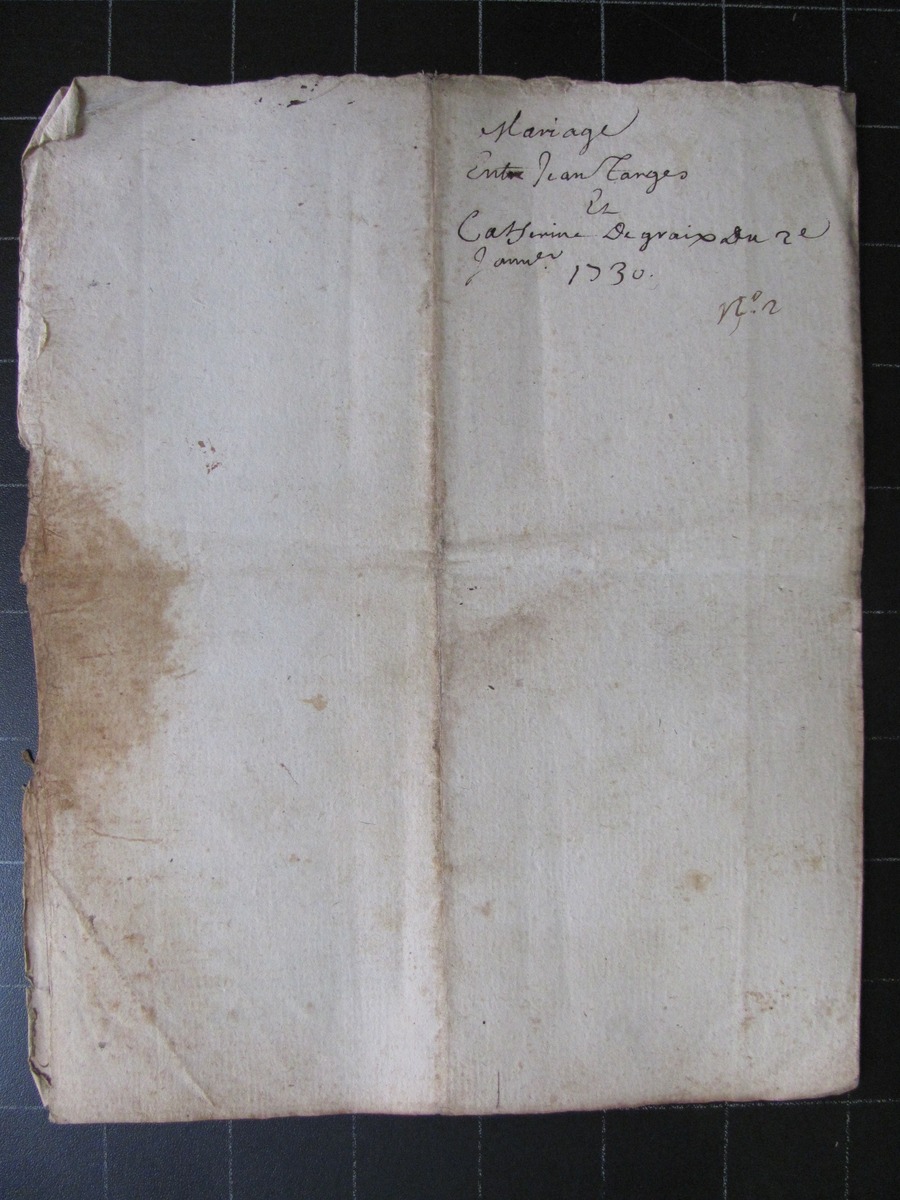 Mariage
Entre Jean Targes
Et
Catherine Degraix Du 2e
Janver 1730.
No. 2